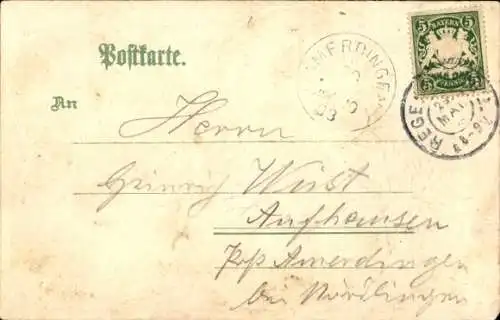 Postkarte.
AMERDINGEN
03
5 BAYERN 5
PFENNIG
REGE
23
MAI
8-9
An
Herrn
Heinrich Wüst
Aufhausen
Post Amerdingen
bei Nördlingen